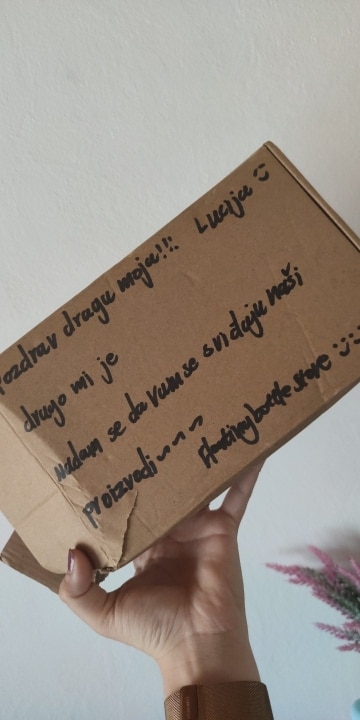 Pozdrav draga moja!!! Lucija :)
drago mi je
nadam se da vam se sviđaju naši
proizvodi ~~~
Floatingbottle store :) :)